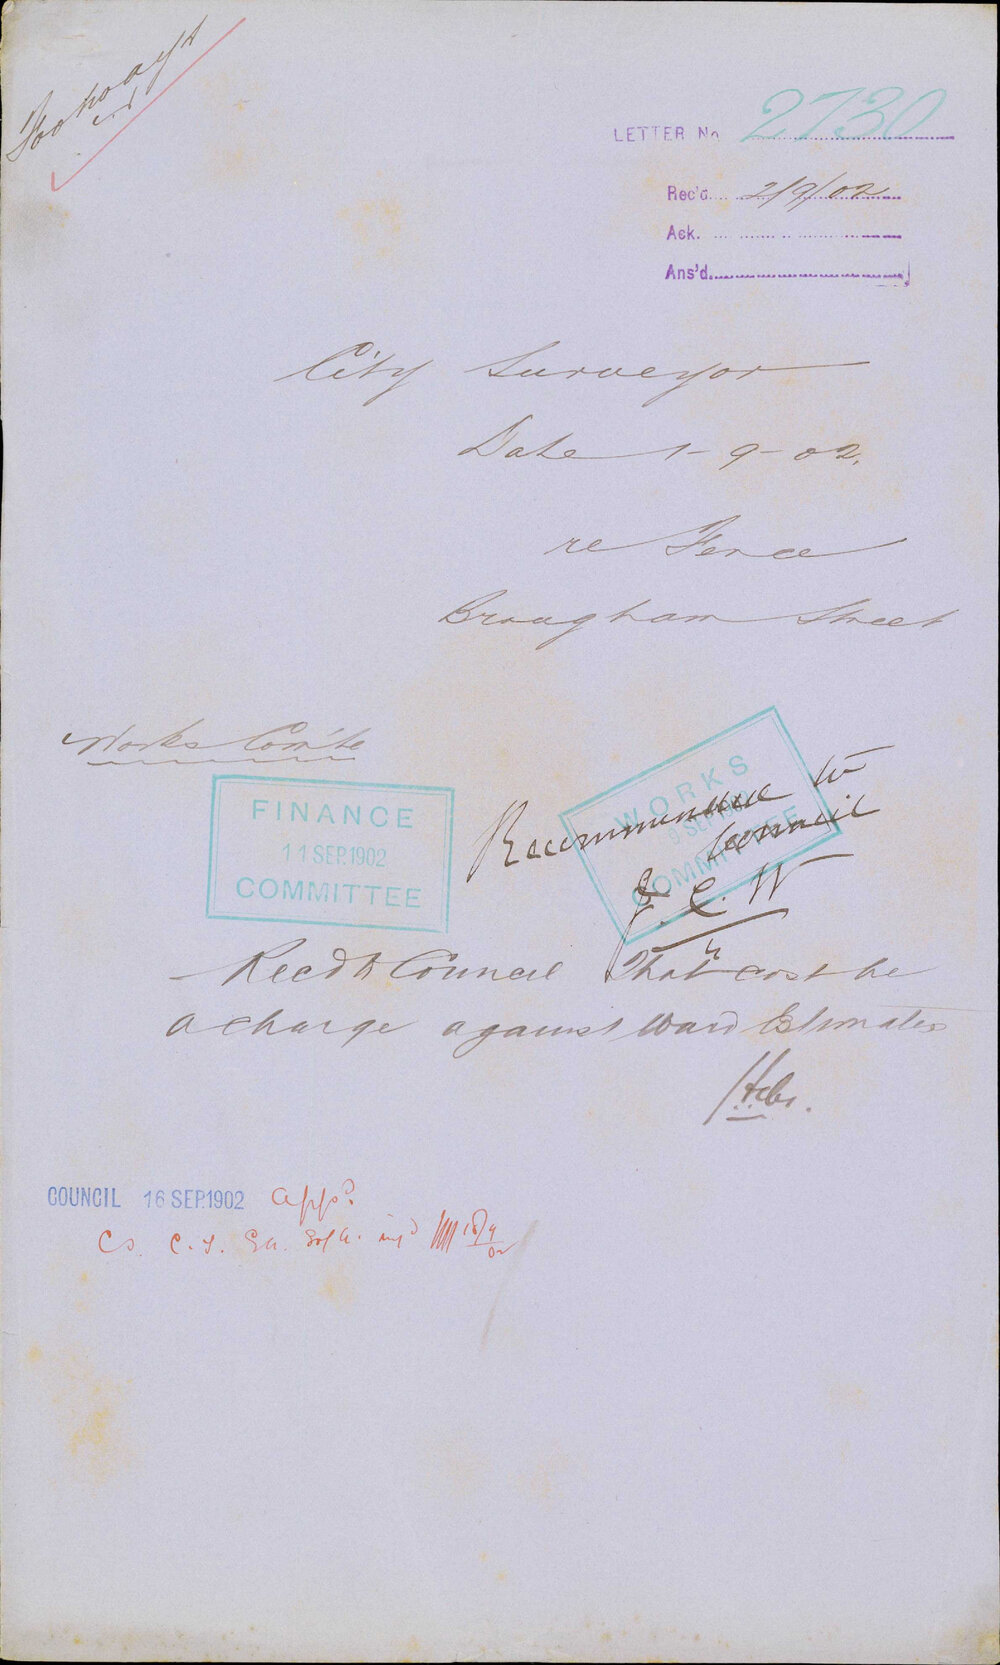 LETTER No 2730
Rec'd. 2/9/02
Ack.
Ans'd.
City Surveyor
Date 1-9-02.
re Fence
Brougham Street
Works Com'te
FINANCE
11 SEP.1902
COMMITTEE
WORKS
9 SEP.1902
COMMITTEE
Recommended to
Council
J. C. W
Recd to Council That cost be
a charge against Ward Estimates
COUNCIL 16 SEP.1902 appd